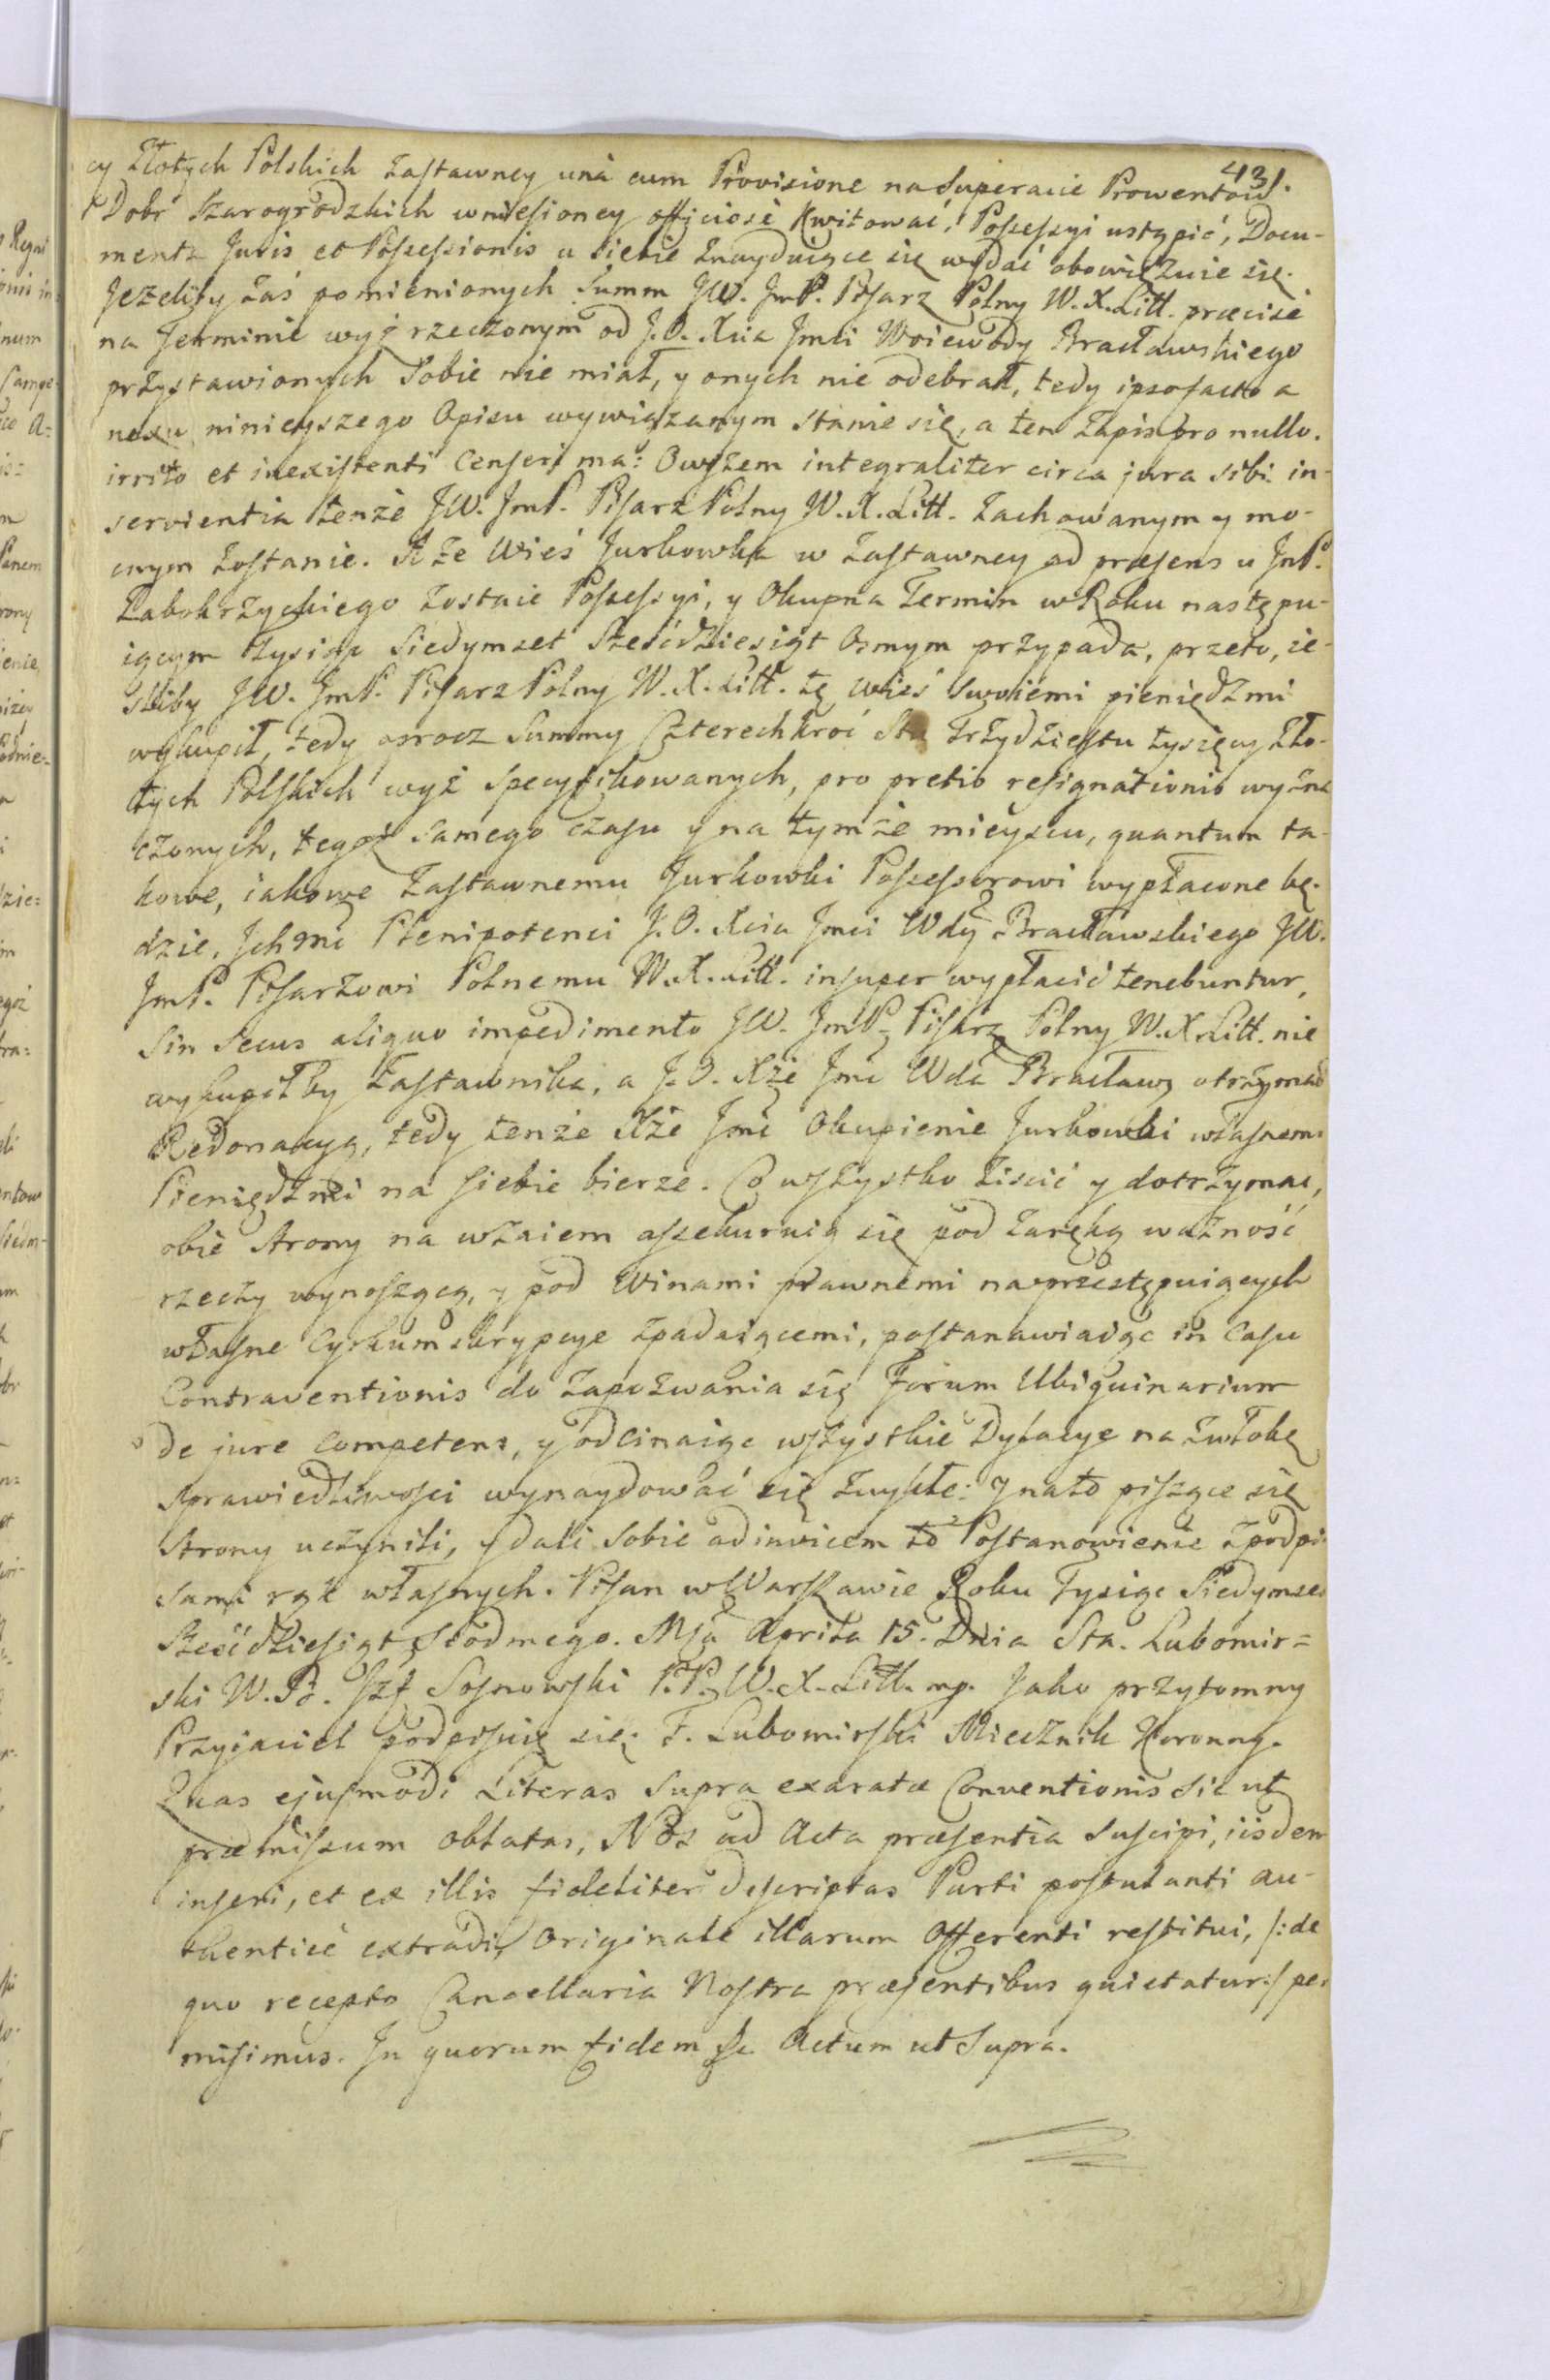 431.
cy Złotych Polskich Zastawney una cum Provisione na Superacie Prowentow
Dobr Szarogrodzkich wniesioney officiose Kwitować, Possessyi ustąpić, Docu-
menta Juris et Possessionis u siebie znayduiące się wydać obowięzuie się.
Jeżeliby zaś pomienionych Summ JW. JmP. Pisarz Polny W. X. Litt. præcise
na Terminie wyż rzeczonym od J. O. Xcia Jmci Woiewody Bracławskiego
przystawionych Sobie nie miał, y onych nie odebrał, tedy ipso facto a
nexu ninieyszego Opisu wywiązanym stanie się, a ten Zapis pro nullo.
irrito et inexistenti Censeri ma: Owszem integraliter circa jura sibi in-
servientia tenże JW. JmP. Pisarz Polny W. X. Litt. Zachowanym y mo-
cnym zostanie. A że Wieś Jurkowka w Zastawney ad præsens u JmP.
Zabokrzyckiego zostaie Possessyi, y Okupna Termin w Roku następu-
iącym tysiąc Siedymset Sześćdziesiąt Osmym przypada, przeto, ie-
śliby JW. JmP. Pisarz Polny W. X. Litt. tę Wieś swoiemi pieniędzmi
wykupił, tedy oprocz Summy Czterechkroć Sta Trzydziestu tysięcy Zło-
tych Polskich wyż specyfikowanych, pro pretio resignationis wyzna
czonych, tegoż samego czasu y na tymże mieyscu, quantum ta-
kowe, iakowe Zastawnemu Jurkowki Possessorowi wypłacone bę-
dzie, Ichmć Plenipotenci J. O. Xcia Jmci Wdy Bracławskiego JW.
JmP. Pisarzowi Polnemu W. X. Litt. insuper wypłacić tenebuntur,
Sin Secus aliquo impedimento JW. JmP. Pisarz Polny W. X. Litt. nie
wykupiłby Zastawnika, a J. O. Xże Jmć Wda Bracławs otrzymał
Redonacyą, tedy tenże Xże Jmć Okupienie Jurkowki własnemi
Pieniędzmi na siebie bierze. Co wszystko ziscić y dotrzymac,
obie strony na wzaiem assekuruią się pod zaręką ważność
rzeczy wynoszącą, y pod Winami prawnemi na przestępuiących
własne Cyrkumskrypcye spadaiącemi, postanawiaiąc in Casu
Contraventionis do zapozwania się Forum Ubiquinarium
de jure competens, y odcinaiąc wszystkie Dylacye na zwłokę
sprawiedliwosci wynaydować się zwykłe: Ynato piszące się
strony uczynili, y dali sobie adinvicem to Postanowienie z podpi-
sami rąk własnych. Pisan w Warszawie Roku Tysiąc Siedymset
Sześćdziesiąt Siodmego. Msca Aprila 15. Dnia Sta. Lubomir=
ski W. B. Jzf Sosnowski P. P. W. X. Litt. mp. Jako przytomny
Przyjaciel podpisuię się F. Lubomirski Miecznik Koronny.
Quas ejusmodi Literas supra exaratæ Conventionis sic ut
præmissum oblatas, Nos ad Acta præsentia suscipi, iisdem
inseri, et ex illis fideliter descriptas Parti postulanti au-
thentice extradi, Originale illarum Offerenti restitui, /:de
quo recepto Cancellaria Nostra præsentibus quietatur:/ per
misimus. In quorum fidem &c Actum ut Supra.